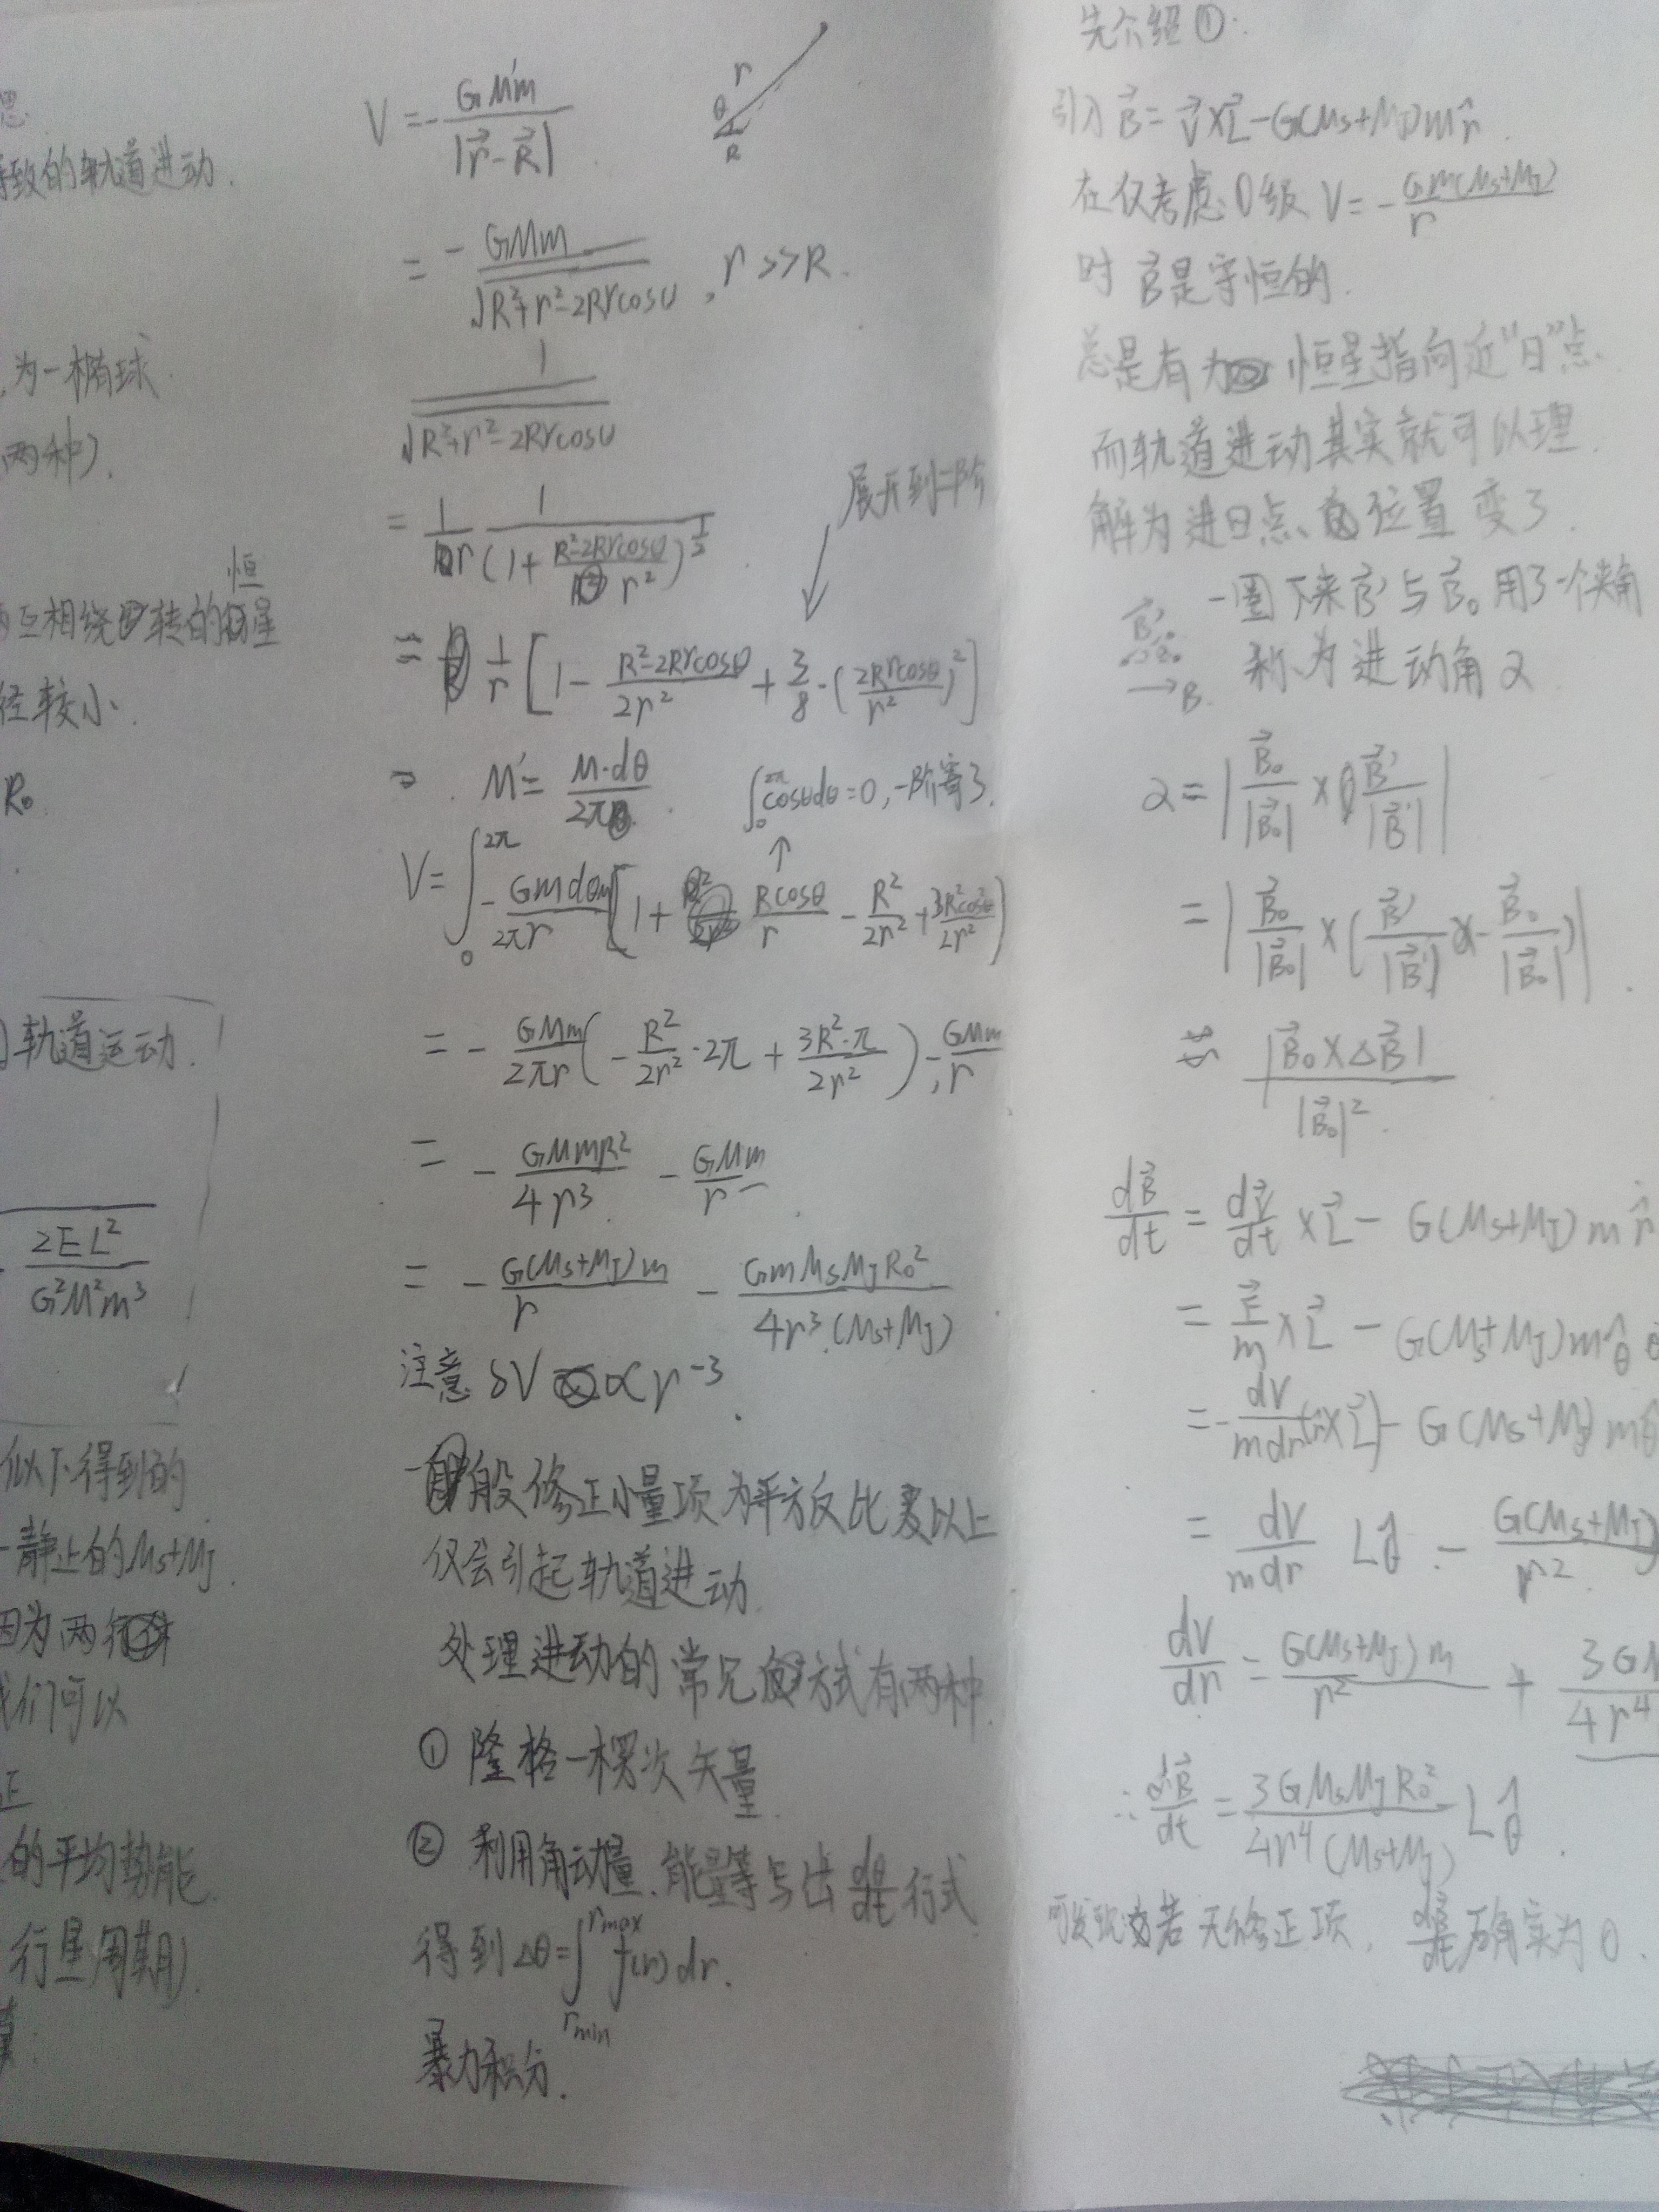 思
导致的轨道进动.
为一椭球
两种).
恒
互相绕转的恒星
径较小.
R₀
轨道运动.
2EL²
G²M²m³
似下得到的
静止的Ms+MJ.
因为两
我们可以
正
的平均势能.
行星周期).
V = -GM'm / |r⃗-R⃗|
r
θ
R
= -GMm / √(R²+r²-2Rrcosθ), r>>R.
1 / √(R²+r²-2Rrcosθ)
= 1/r · 1 / (1+(R²-2Rrcosθ)/r²)^(1/2)
展开到二阶
= 1/r [1 - (R²-2Rrcosθ)/2r² + 3/8·(2Rrcosθ/r²)²]
⇒ M' = M·dθ / 2π
∫₀^2π cosθdθ=0, 一阶寄了.
V = ∫₀^2π -Gmdθm / 2πr [1 + Rcosθ/r - R²/2r² + 3R²cos²θ/2r²)
= -GMm/2πr (-R²/2r²·2π + 3R²·π/2r²) - GMm/r
= -GMmR²/4r³ - GMm/r
= -G(Ms+MJ)m/r - GmMsMJR₀²/4r³(Ms+MJ)
注意 δV ∝ r⁻³
一般修正小量项为平方反比以上
仅会引起轨道进动.
处理进动的常见方式有两种
① 隆格-楞次矢量
② 利用角动量、能量等写出 dθ/dt 行式
得到 Δθ=∫_{rmin}^{rmax} f(r)dr.
暴力积分.
先介绍①:
引入 B⃗ = v⃗×L⃗ - G(Ms+MJ)m r̂
在仅考虑0级 V = -Gm(Ms+MJ)/r
时 B⃗是守恒的.
总是有为恒星指向近"日"点.
而轨道进动其实就可以理
解为进日点、位置变了.
一圈下来B⃗'与B⃗₀用了一个夹角
→B
称为进动角α
α = |B⃗₀/|B⃗₀| × B⃗'/|B⃗'||
= |B⃗₀/|B⃗₀| × (B⃗'/|B⃗'| - B⃗₀/|B⃗₀|)|
≈ |B⃗₀×ΔB⃗| / |B⃗₀|²
dB⃗/dt = dv⃗/dt × L⃗ - G(Ms+MJ)m r̂
= F⃗/m × L⃗ - G(Ms+MJ)m θ̂
= -dV/mdr (r̂×L⃗) - G(Ms+MJ)mθ̂
= dV/mdr Lθ̂ - G(Ms+MJ)/r²
dV/dr = G(Ms+MJ)m/r² + 3GM/4r⁴
∴ dB⃗/dt = 3GMsMJR₀²/4r⁴(Ms+MJ) Lθ̂.
可发现若无修正项, dB⃗/dt确实为0.